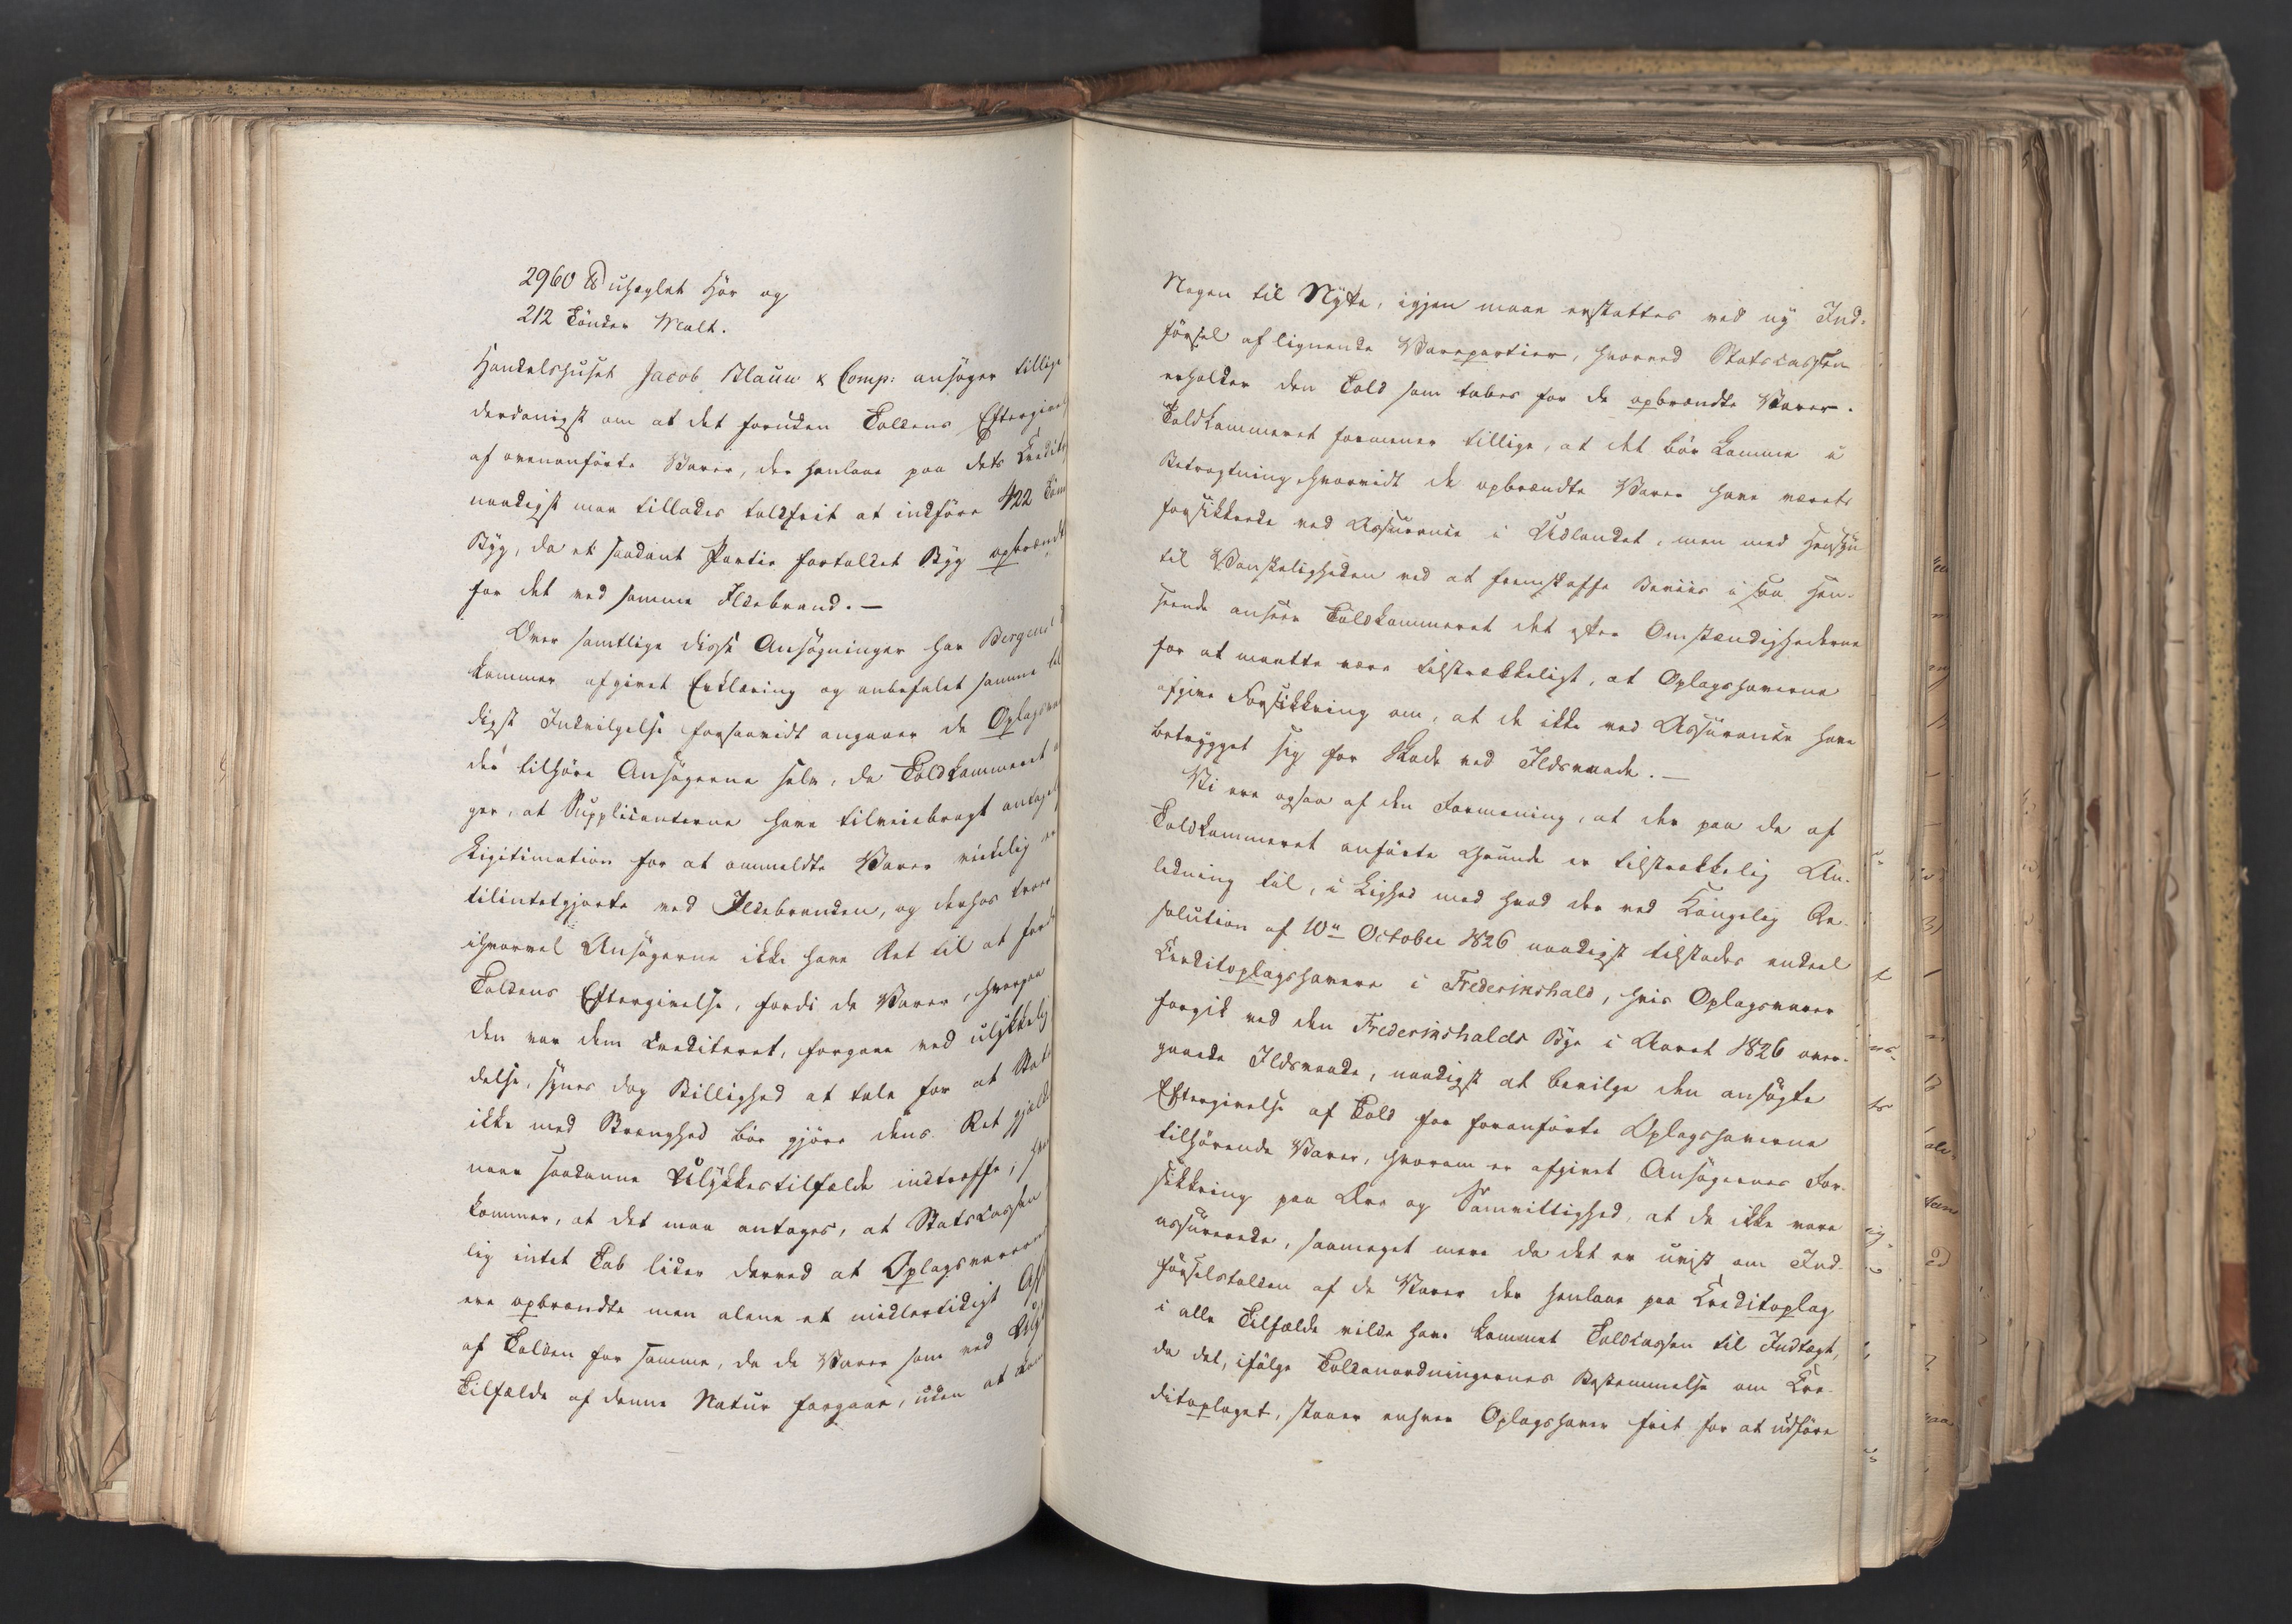 2960 ℔ uheglet Hör og
212 Tönder Malt.
Handelshuset Jacob Blauw & Comp: ansöger tillige
derdanigst om at det foruden Toldens Eftergivel
af ovenanförte Varer, der henlaae paa dets Credito
naadigst maa tillades toldfrit at indföre 422 Tön
Byg, da et saadant Partie fortoldet Byg opbrændt
for det ved samme Ildebrand. —
Over samtlige disse Ansögninger har Bergens
kammer afgivet Erklæring og anbefalet samme til
digst Indvilgelse forsaavidt angaaer de Oplagsva
der tilhöre Ansögerne selv, da Toldkammeret
ger, at Supplicanterne have tilveiebragt antagel
Ligitimation for at ommeldte Varer virkelig er
tilintetgjorte ved Ildebranden, og derhos troer
ihvorvel Ansögerne ikke have Ret til at ford
Toldens Eftergivelse, fordi de Varer, hvorpaa
den var dem crediteret, forgaae ved ulykkelig
delse, synes dog Billighed at tale for at Stat
ikke med Strenghed bör gjöre dens Ret gjæld
naar saadanne Ulykkestilfælde indtræffe; hv
kommer, at det maa antages, at Statscassen
lig intet Tab lider derved at Oplagsvarer
ere opbrændte men alene et midlertidigt Afs
af Tolden for samme, da de Varer som ved Ulyk
Tilfælde af denne Natur forgaae, uden at kom
Nogen til Nytte, igjen maae erstattes ved ny Ind-
försel af lignende Varepartier, hvorved Statscassen
erholder den Told som tabes for de opbrændte Varer.
Toldkammeret formener tillige, at det bör komme i
Betragtning hvorvidt de opbrændte Varer have været
forsikkrede ved Assurance i Udlandet, men med Hensyn
til Vanskeligheden ved at fremskaffe Beviis i saa Hen-
seende ansees Toldkammeret det efter Omstændighederne
for at maatte være tilstrækkeligt, at Oplagshaverne
afgive Forsikkring om, at de ikke ved Assurance have
betrygget sig for Skade ved Ildsvaade. —
Vi ere ogsaa af den Formening, at der paa de af
Toldkammeret anförte Grunde er tilstrækkelig An-
ledning til, i Lighed med hvad der ved Kongelig Re-
solution af 10n October 1826 naadigst tilstodes endeel
Creditoplagshavere i Frederikshald, hvis Oplagsvarer
forgik ved den Frederikshalds Bye i Aaret 1826 over-
gaaede Ildsvaade, naadigst at bevilge den ansögte
Eftergivelse af Told for foranförte Oplagshaverne
tilhörende Varer, hvorom er afgivet Ansögernes For-
sikkring paa Ære og Samvittighed, at de ikke vare
assurerede, saameget mere da det er uvist om Ind-
förselstolden af de Varer der henlaae paa Creditoplag
i alle Tilfælde vilde have kommet Toldcassen til Indtægt,
da det, ifölge Toldanordningernes Bestemmelse om Cre-
ditoplaget, staaer enhver Oplagshaver frit for at udföre